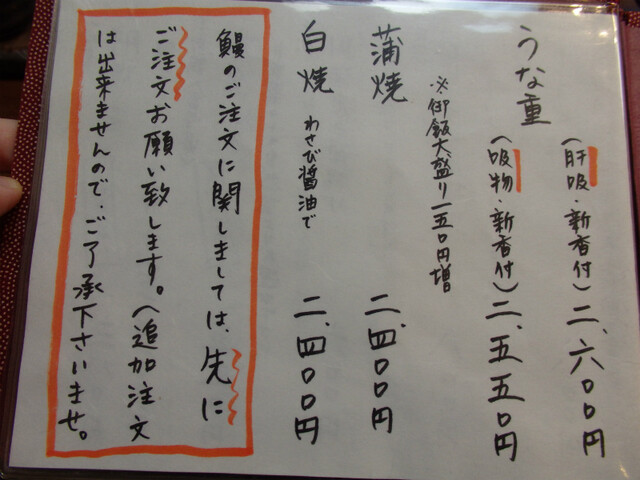 うな重
(肝吸・新香付)二、六〇〇円
(吸物・新香付)二、五五〇円
※御飯大盛り一五〇円増
蒲焼 二、四〇〇円
白焼 わさび醤油で 二、四〇〇円
鰻のご注文に関しましては、先に
ご注文お願い致します。(追加注文
は出来ませんので、ご了承下さいませ。